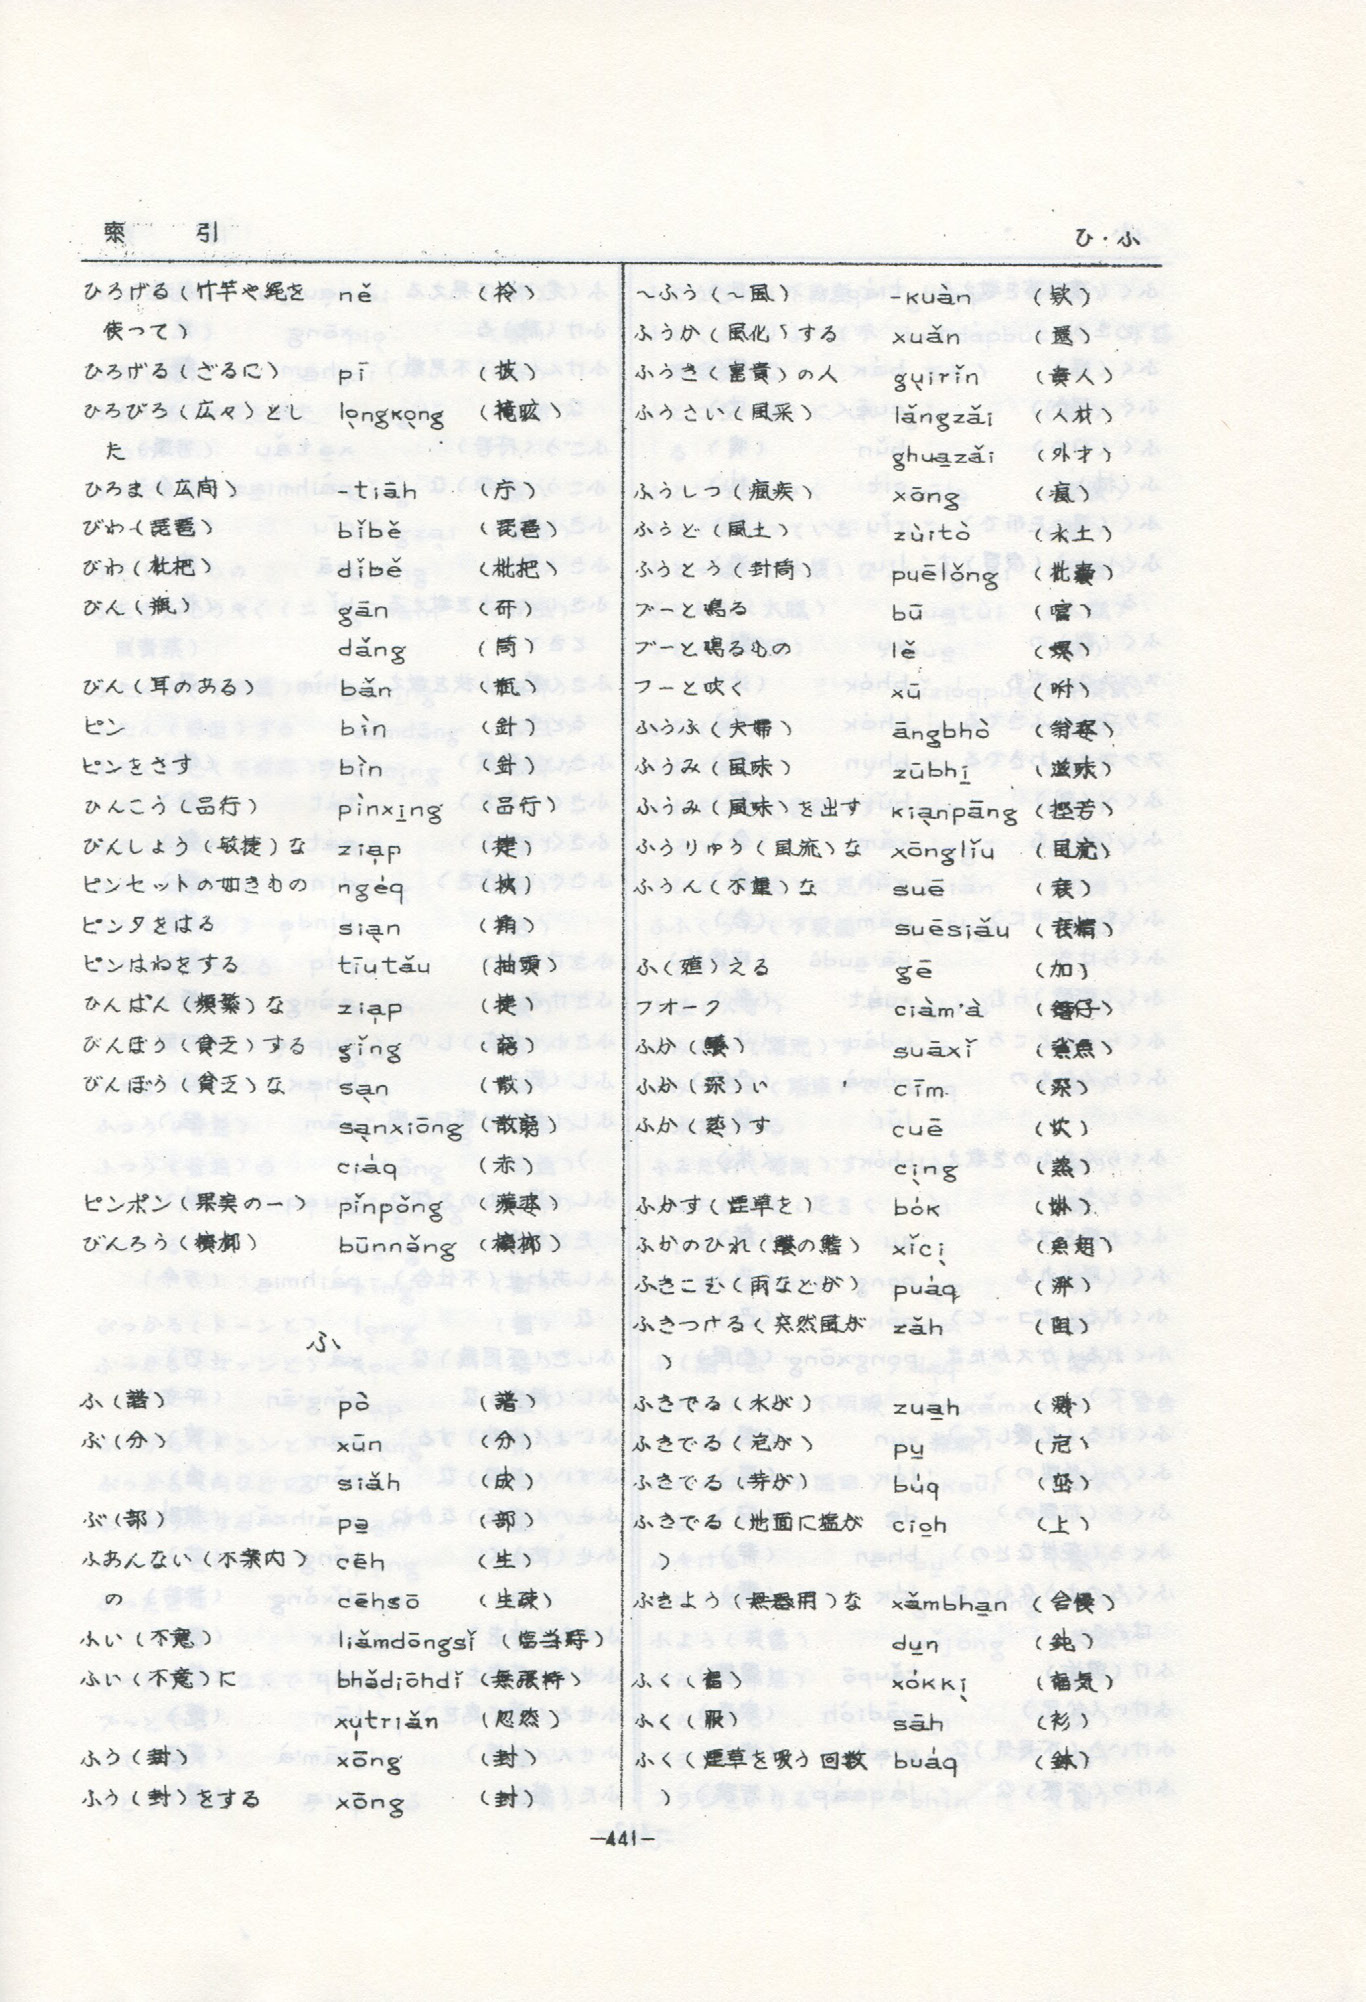 索 引
ひ・ふ
ひろげる（竹竿や縄を ně
使って）
ひろげる（ざるに） pī （披）
ひろびろ（広々）とし lo̱ngko̱ng
た
ひろま（広間） -tiāh （庁）
びわ（琵琶） bǐbě （琵琶）
びわ（枇杷） dǐbě （枇杷）
びん（瓶） gān （矸）
dǎng （筒）
びん（耳のある） bǎn （瓶）
ピン bìn （針）
ピンをさす bìn （針）
ひんこう（品行） pìnxi̱ng （品行）
びんしょう（敏捷）な zia̩p （捷）
ピンセットの如きもの ngéq （挾）
ピンタをはる sia̩n
ピンはねをする tīutǎu （抽頭）
ひんぱん（頻繁）な zia̩p （捷）
びんぼう（貧乏）する gǐng
びんぼう（貧乏）な sa̩n （散）
sa̩nxiōng （散窮）
ciáq （赤）
ピンポン（果実の一） pǐnpǒng
びんろう（檳榔） būnnǎng （檳榔）
ふ
ふ（譜） pò （譜）
ぶ（分） xūn （分）
siǎh （成）
ぶ（部） po̱ （部）
ふあんない（不案内） cēh （生）
の cēhsō （生疎）
ふい（不意） liǎmdōngsǐ （臨当時）
ふい（不意）に bhǎdiōhdǐ （無張持）
xu̍triǎn （忽然）
ふう（封） xōng （封）
ふう（封）をする xōng （封）
～ふう（～風） -kuàn （款）
ふうか（風化）する xuǎn （還）
ふうき（富貴）の人 gu̩irǐn （貴人）
ふうさい（風采） lǎngzǎi （人材）
ghua̱zǎi （外才）
ふうしつ（瘋疾） xōng （瘋）
ふうど（風土） zùitò （水土）
ふうとう（封筒） puēlǒng （批囊）
ブーと鳴る bū
ブーと鳴るもの lě （螺）
フーと吹く xū
ふうふ（夫婦） āngbhò （翁婆）
ふうみ（風味） zūbhi̱ （滋味）
ふうみ（風味）を出す kia̩npāng
ふうりゅう（風流）な xōnglǐu （風流）
ふうん（不運）な suē （衰）
suēsiǎu （衰精）
ふ（殖）える gē （加）
フオーク ciàm'à
ふか（鱶） suāxǐ （鯊魚）
ふか（深）い cīm （深）
ふか（蒸）す cuē （炊）
ci̩ng （蒸）
ふかす（煙草を） bók
ふかのひれ（鱶の鰭） xǐci̩ （魚翅）
ふきこむ（雨などが） puáq
ふきつける（突然風が zǎh
）
ふきでる（水が） zua̱h （濺）
ふきでる（泡が） pu̱
ふきでる（芽が） búq
ふきでる（地面に塩が cio̱h （上）
）
ぶきよう（無器用）な xǎmbha̱n （含慢）
du̱n （鈍）
ふく（福） xókki̩ （福気）
ふく（服） sāh （衫）
ふく（煙草を吸う回数 buáq （鉢）
）
—441—